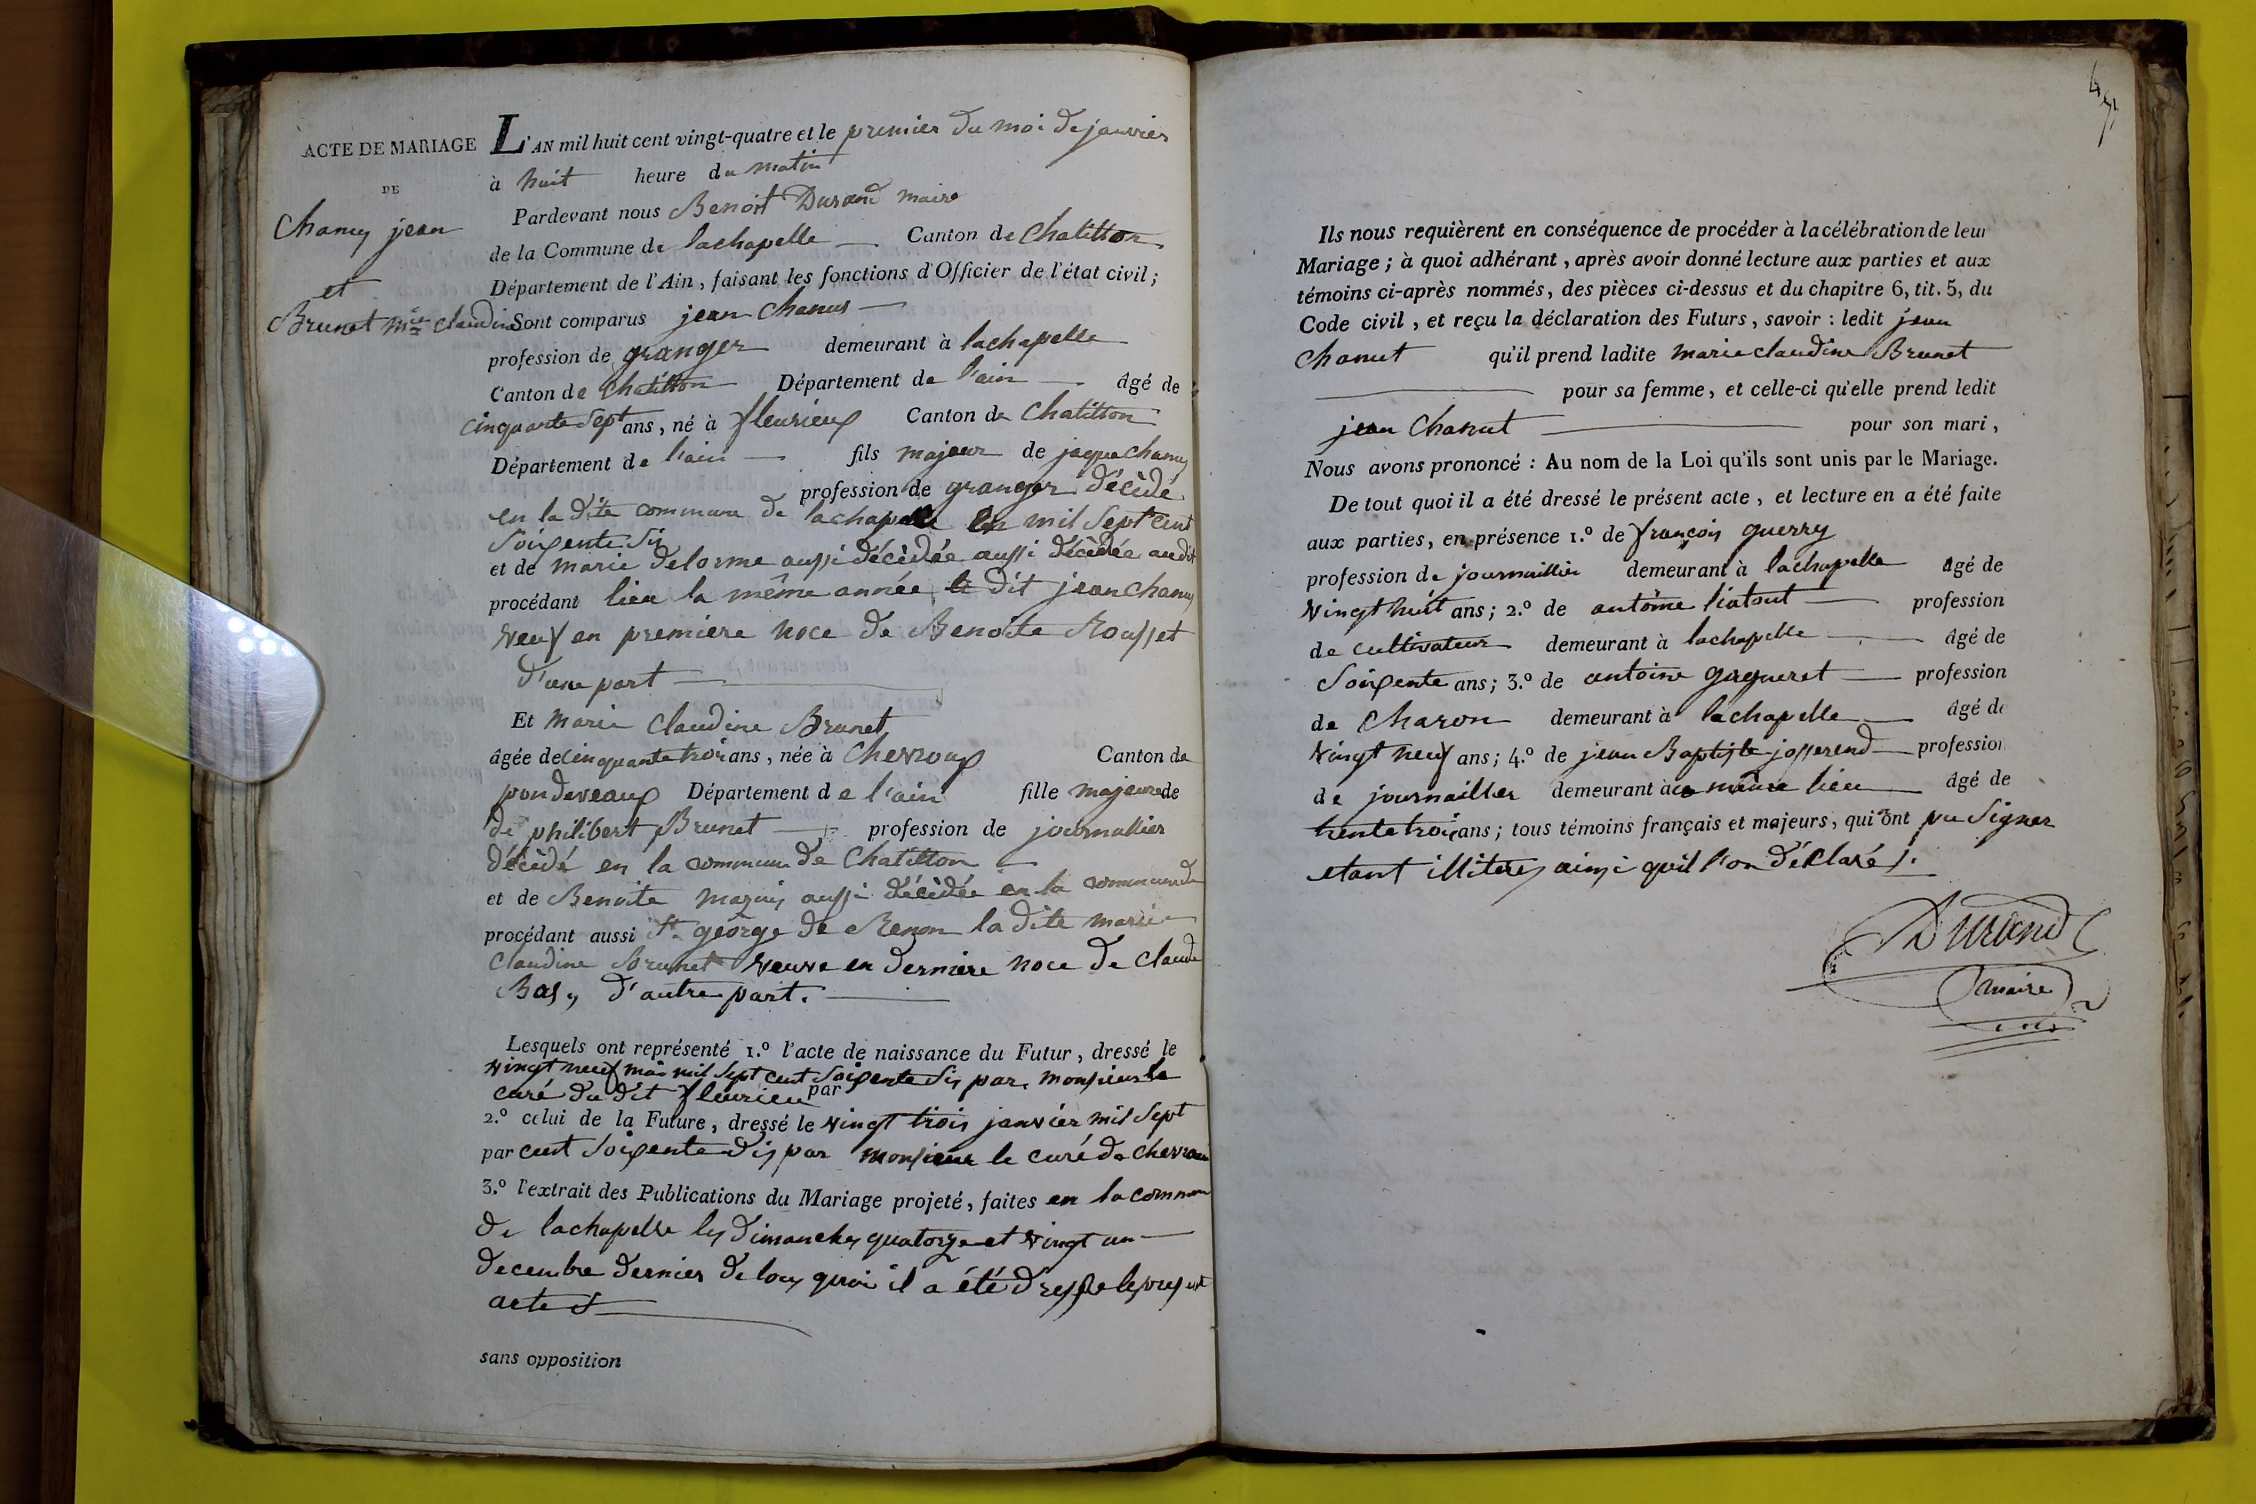 ACTE DE MARIAGE
DE
Chanus jean
et
Brunet Mie claudine
L'AN mil huit cent vingt-quatre et le premier du moi de janvier
à huit heure du matin
Pardevant nous Benoit Durand maire
de la Commune de lachapelle Canton de Chatillon
Département de l'Ain, faisant les fonctions d'Officier de l'état civil;
Sont comparus jean Chanus
profession de granger demeurant à lachapelle
Canton de Chatillon Département de l'ain âgé de
cinquante Sept ans, né à fleurieux Canton de Chatillon
Département de l'ain fils majeur de jaque Chanus
profession de granger décèdé
en la dite commune de lachapelle en mil Sept cent
Soixente Six
et de marie delorme aussi décèdée aussi décèdée audit
procédant lieu la même année, le dit jean Chanus
veuf en premiere noce de Benoite Rousset
d'une part
Et Marie Claudine Brunet
âgée de cinquante trois ans, née à Chevroux Canton de
pondeveaux Département de l'ain fille majeure de
de philibert Brunet profession de journallier
décèdé en la commune de Chatillon
et de Benoite aussi décèdée en la commune de
procédant aussi St george de Renon la dite marie
Claudine Brunet veuve en derniere noce de Claude
Bas, d'autre part.
Lesquels ont représenté 1.º l'acte de naissance du Futur, dressé le
vingt neuf mil Sept cent Soixente Six par monsieur le
curé du dit fleurieu par
2.º celui de la Future, dressé le vingt trois janvier mil Sept
par cent Soixente dix par monsieur le curé de chevroux
3.º l'extrait des Publications du Mariage projeté, faites en la commune
de lachapelle les Dimanches quatorze et vingt un
decembre dernier de tous quoi il a été dressé le present
acte
sans opposition
47
Ils nous requièrent en conséquence de procéder à la célébration de leur
Mariage; à quoi adhérant, après avoir donné lecture aux parties et aux
témoins ci-après nommés, des pièces ci-dessus et du chapitre 6, tit. 5, du
Code civil, et reçu la déclaration des Futurs, savoir : ledit jean
Chanut qu'il prend ladite marie claudine Brunet
pour sa femme, et celle-ci qu'elle prend ledit
jean Chanut pour son mari,
Nous avons prononcé : Au nom de la Loi qu'ils sont unis par le Mariage.
De tout quoi il a été dressé le présent acte, et lecture en a été faite
aux parties, en présence 1.º de françois guerry
profession de journaillier demeurant à lachapelle âgé de
vingt huit ans; 2.º de antoine liatout profession
de cultivateur demeurant à lachapelle âgé de
Soixente ans; 3.º de antoine gagneret profession
de Charon demeurant à lachapelle âgé de
vingt neuf ans; 4.º de jean Baptiste josserend profession
de journaillier demeurant à même lieu âgé de
trente trois ans; tous témoins français et majeurs, qui ont pu Signer
etant illiteres ainsi qu'il l'on déclaré.
Durand
maire